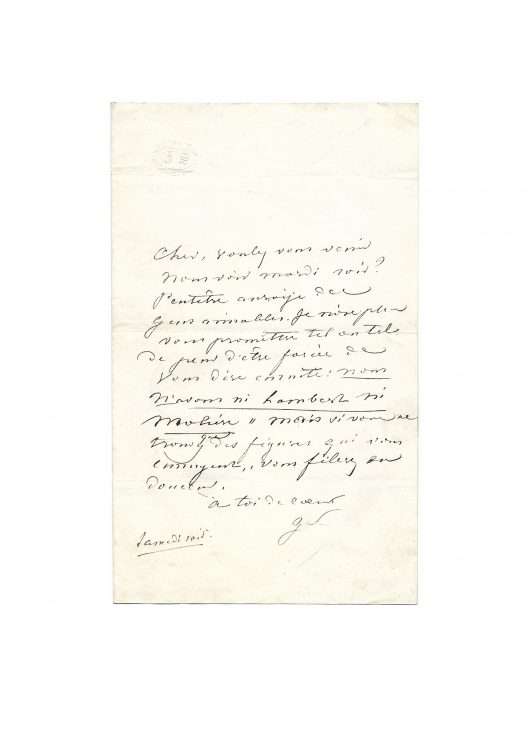 Cher, voulez vous venir
nous voir mardi soir?
Peutêtre auraije des
gens aimables. Je n'ose plus
vous promettre tel ou tels
de peur d'être forcée de
vous dire ensuite: nous
n'avons ni Lambert ni
Molière " mais si vous ne
trouvez que des figures qui vous
ennuyent, vous filerez en
douceur.
à toi de coeur
G
Samedi soir.